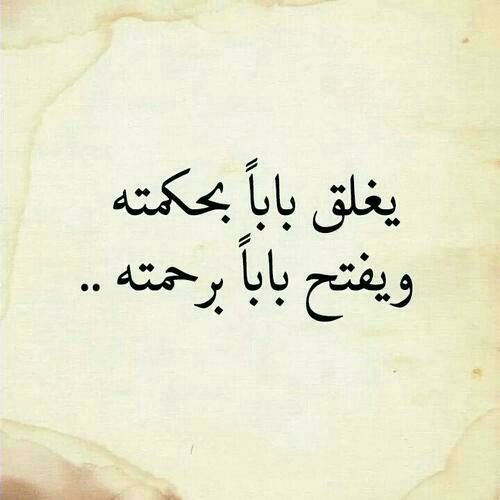 يغلق باباً بحكمته
ويفتح باباً برحمته ..